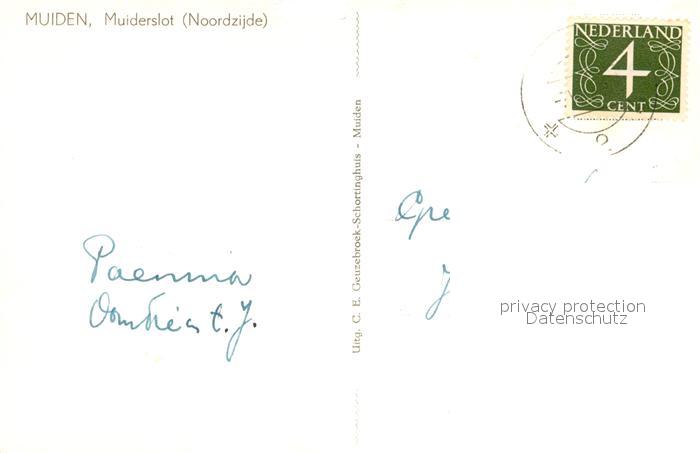 MUIDEN, Muiderslot (Noordzijde)
NEDERLAND
4
CENT
Uitg. C. E. Geuzebroek-Schortinghuis - Muiden
t. J.
privacy protection
Datenschutz